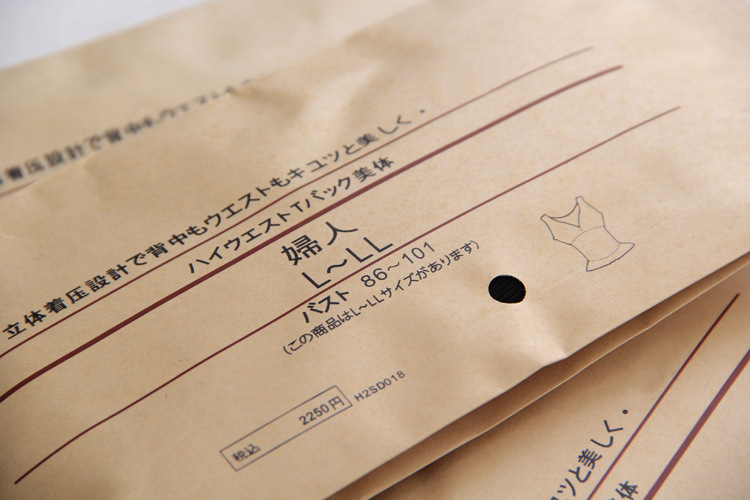 着圧設計で背中も
立体着圧設計で背中もウエストもキュッと美しく。
ハイウエストTバック美体
婦人
L～LL
バスト 86～101
(この商品はL～LLサイズがあります)
税込 2250円
H2SD018
ュッと美しく。
体